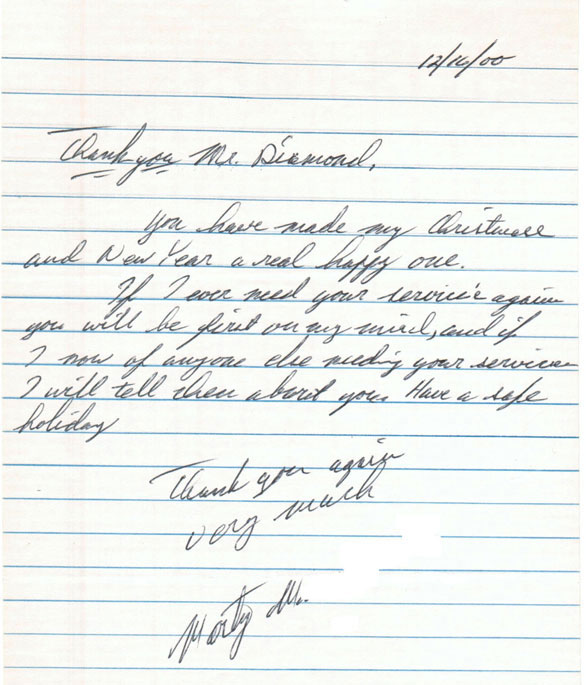 12/16/00
Thank you Mr. Diamond,
You have made my Christmass
and New Year a real happy one.
If I ever need your service again
you will be first on my mind, and if
I now of anyone else needing your service
I will tell them about you. Have a safe
holiday
Thank you again
very much
Marty M.